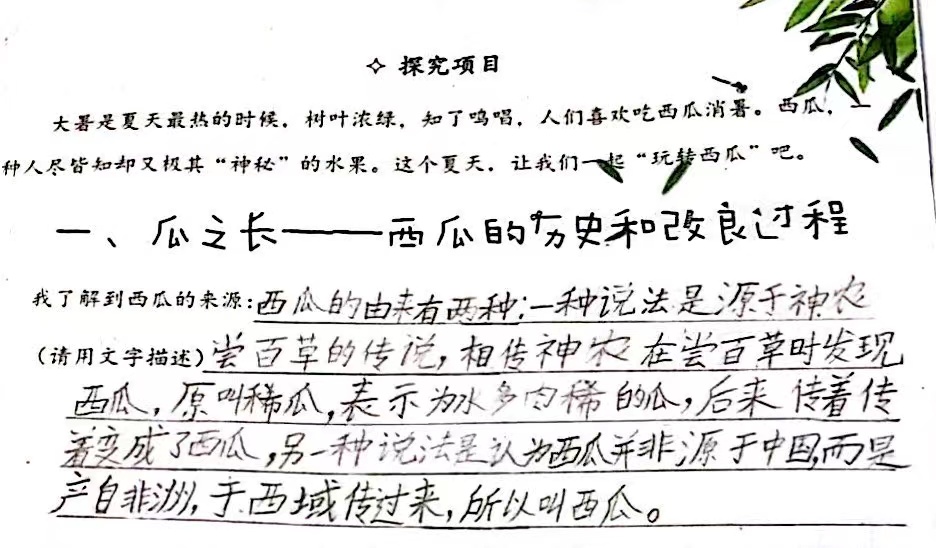 ✧ 探究项目
大暑是夏天最热的时候，树叶浓绿，知了鸣唱，人们喜欢吃西瓜消暑。西瓜，一
种人尽皆知却又极其“神秘”的水果。这个夏天，让我们一起“玩转西瓜”吧。
一、瓜之长——西瓜的历史和改良过程
我了解到西瓜的来源:西瓜的由来有两种:一种说法是源于神农
(请用文字描述)尝百草的传说,相传神农在尝百草时发现
西瓜,原叫稀瓜,表示为水多肉稀的瓜,后来传着传
着变成了西瓜,另一种说法是认为西瓜并非源于中国,而是
产自非洲,于西域传过来,所以叫西瓜。